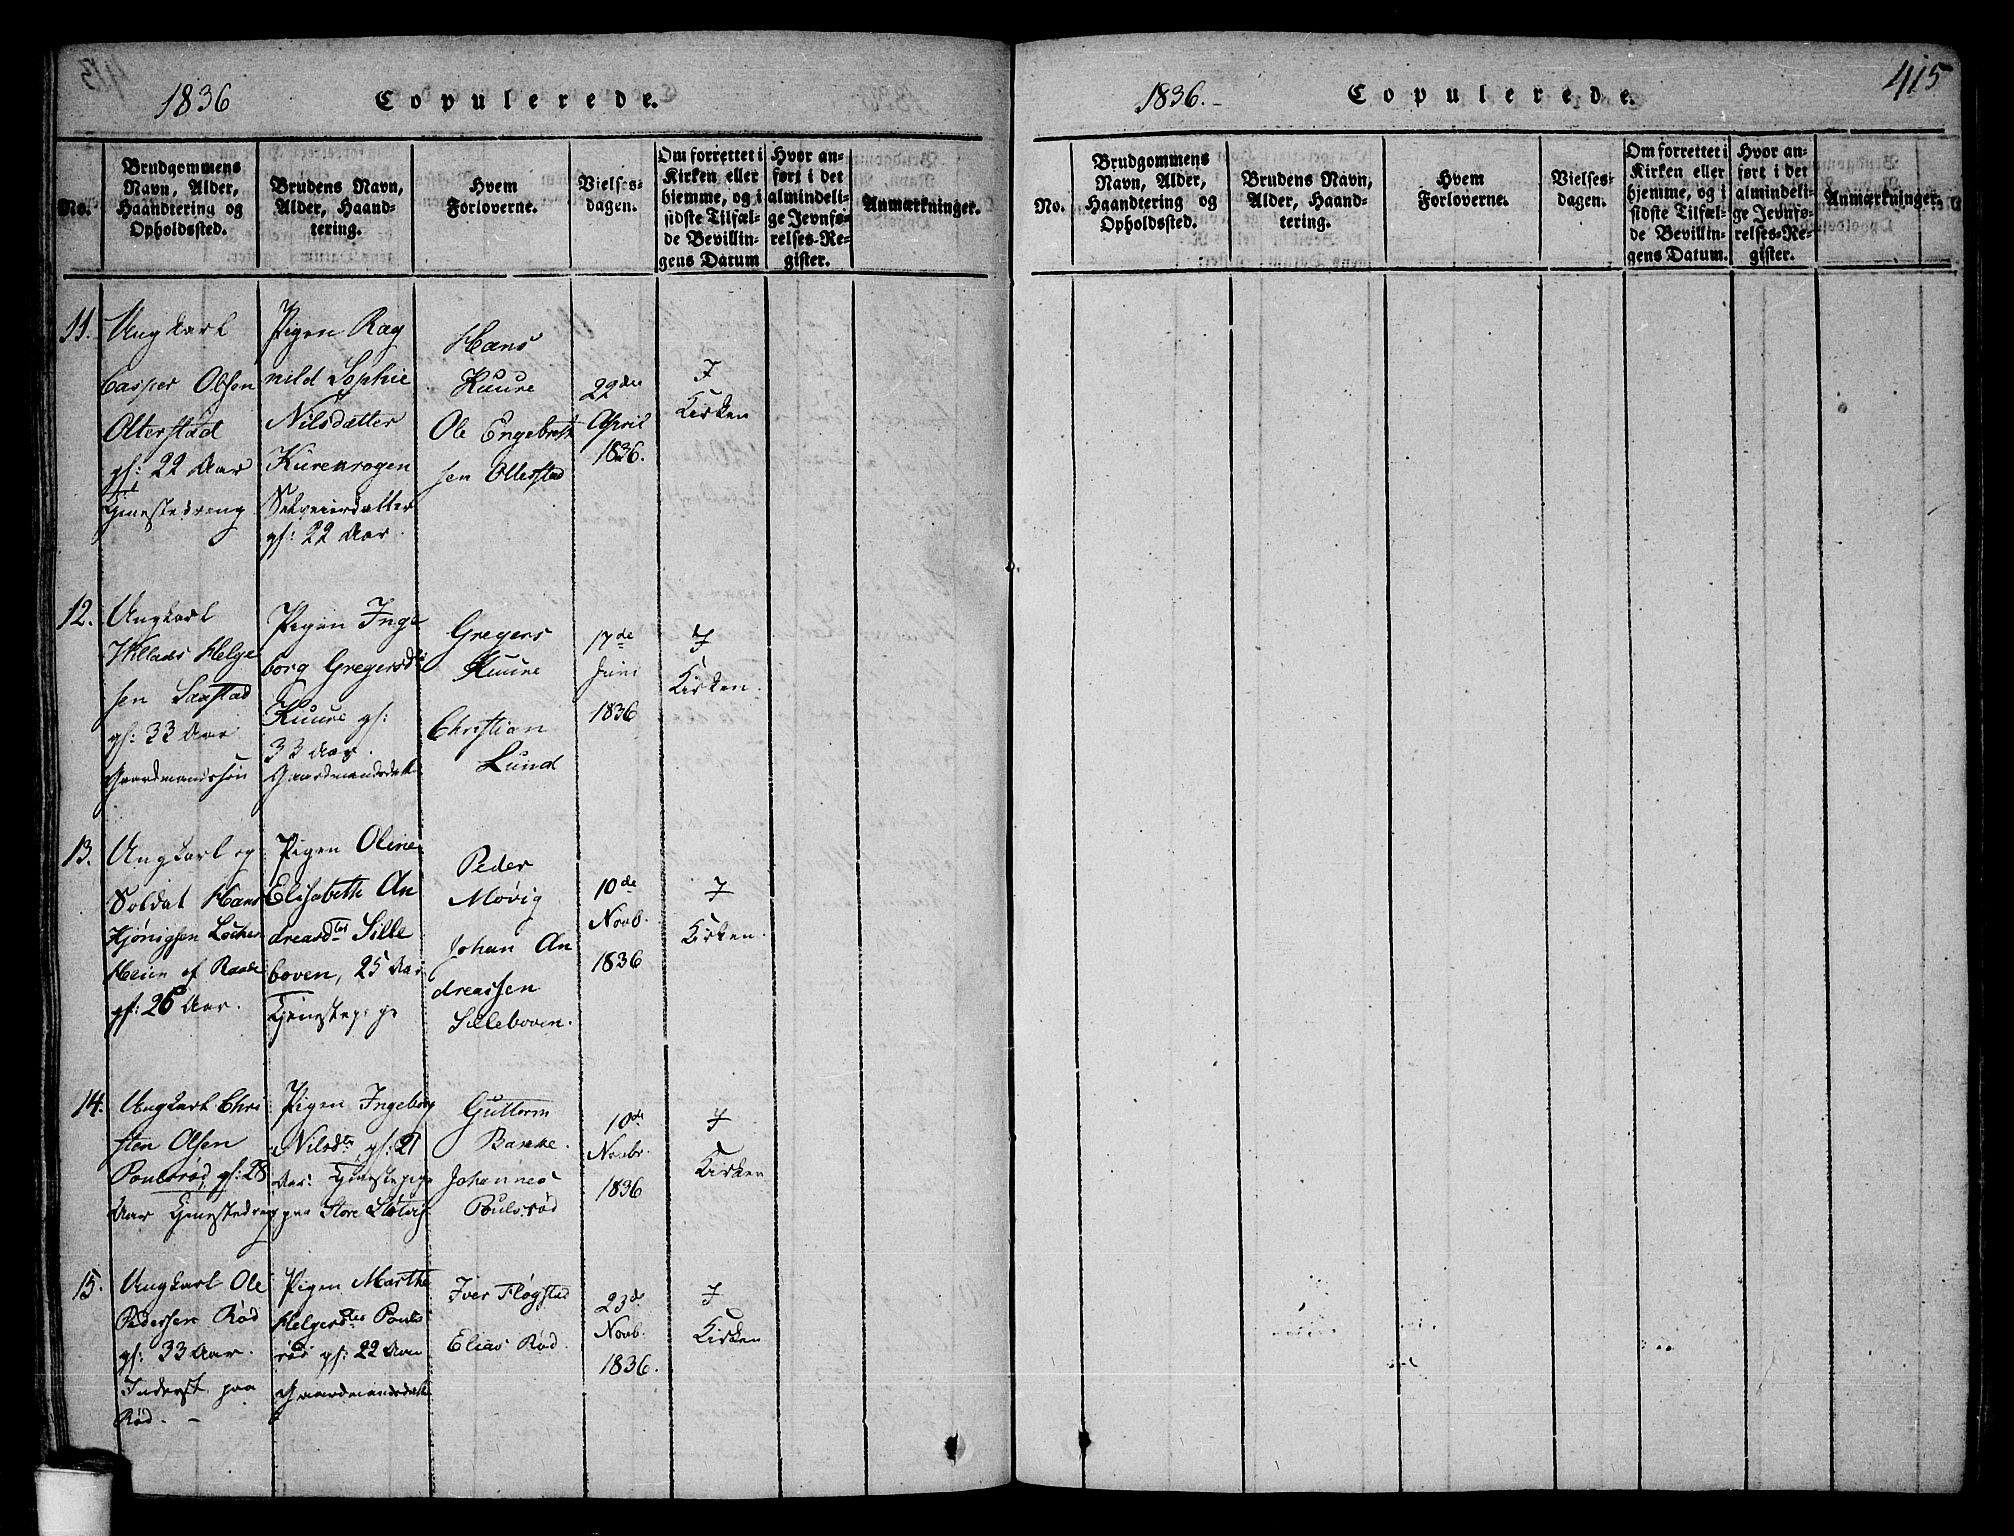 1836 Copulerede.
No.
Brudgommens
Navn, Alder,
Haandtering og
Opholdssted.
Brudens Navn,
Alder, Haand-
tering.
Hvem
Forloverne.
Vielses-
dagen.
Om forrettet i
Kirken eller
hjemme, og i
sidste Tilfæl-
de Bevillin-
gens Datum
Hvor an-
ført i det
almindeli-
ge Jevnfø-
relses-Re-
gister.
Anmærkninger.
11.
Ungkarl
Casper Olsen
Olterstad
gl: 22 Aar
Tjenestedreng
Pigen Rag
nild Sophie
Nilsdatter
gl: 22 Aar.
Hans
Kuure
Ole Engebreth
sen Ollerstad
22de
April
1836.
I
Kirken
12.
Ungkarl
Helge
sen Saxstad
gl: 33 Aar
Gaardmandssøn
Pigen Inge
borg Gregersdtr
Kuure gl:
33 Aar.
Gaardmandsdatt
Gregers
Kuure
Christian
Lund
17de
Juni
1836
I
Kirken.
13.
Ungkarl og
Soldat Hans
af Raade
gl: 26 Aar.
Pigen Oline
Elisabeth An
dreasdter Sille
boven, 25 Aar
Tjenestepige
Peder
Møvig
Johan An
dreassen
Silleboven.
10de
Novb.
1836
I
Kirken.
14.
Ungkarl Chri
sten Olsen
Poulsrød, gl: 28
Aar Tjenestedreng
Pigen Ingeborg
Nilsdtr, gl: 21
Aar Tjenestepige
paa Store
Guttorm
Johannes
Poulsrød
10de
Novbr.
1836
I
Kirken
15.
Ungkarl Ole
Pedersen Rød
gl: 33 Aar.
Inderst paa
Rød. -
Pigen Marthe
Helgesdter Pouls
rød gl: 22 Aar
Gaardmandsdatter
Iver Fløgstad
Elias Rød.
23de
Novb.
1836.
I
Kirken
1836. - Copulerede. 415
No.
Brudgommens
Navn, Alder,
Haandtering og
Opholdssted.
Brudens Navn,
Alder, Haand-
tering.
Hvem
Forloverne.
Vielses-
dagen.
Om forrettet i
Kirken eller
hjemme, og i
sidste Tilfæl-
de Bevillin-
gens Datum.
Hvor an-
ført i det
almindeli-
ge Jevnfø-
relses-Re-
gister.
Anmærkninger.